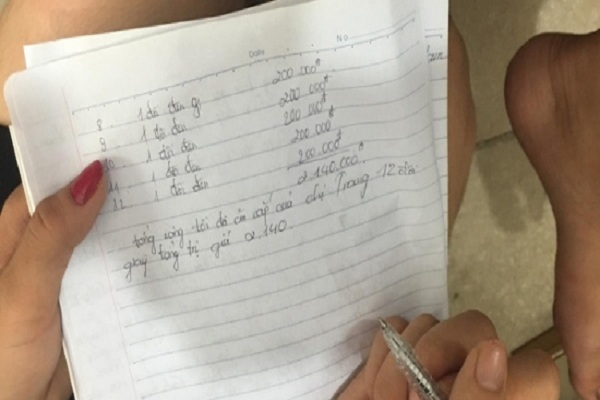 Date No
8 1 đôi đen 200.000đ
9 1 đôi đen 200.000đ
10 1 đôi đen 200.000đ
11 1 đôi đen 200.000đ
12 1 đôi đen 200.000đ
2.140.000đ
tổng cộng tôi đã ăn cắp của chị Trang 12 đôi
giày tổng trị giá 2.140.